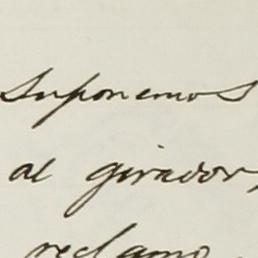 Suponemos
al girador,
reclamo